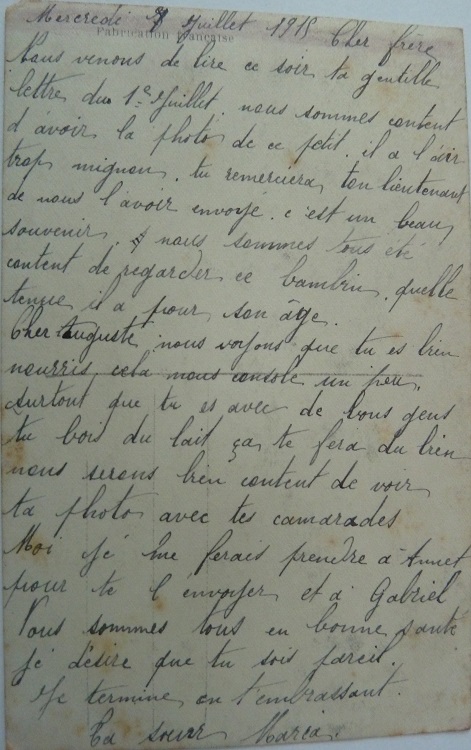 Mercredi Juillet 1918 Cher frère
Fabrication Française
Nous venons de lire ce soir ta gentille
lettre du 1er Juillet nous sommes content
d'avoir la photo de ce petit. il a l'air
trop mignon. tu remerciera ton lieutenant
de nous l'avoir envoye. c'est un beau
souvenir, nous sommes tous été
content de regarder ce bambin. quelle
tenue il a pour son âge.
Cher Auguste nous voyons que tu es bien
nourris, cela nous console un peu.
surtout que tu es avec de bons gens
tu bois du lait ça te fera du bien
nous serons bien content de voir
ta photo avec tes camarades
Moi je me ferais prendre à Annet
pour te l'envoyer et à Gabriel
Nous sommes tous en bonne santé
je désire que tu sois pareil.
Je termine en t'embrassant.
Ta sœur Maria.